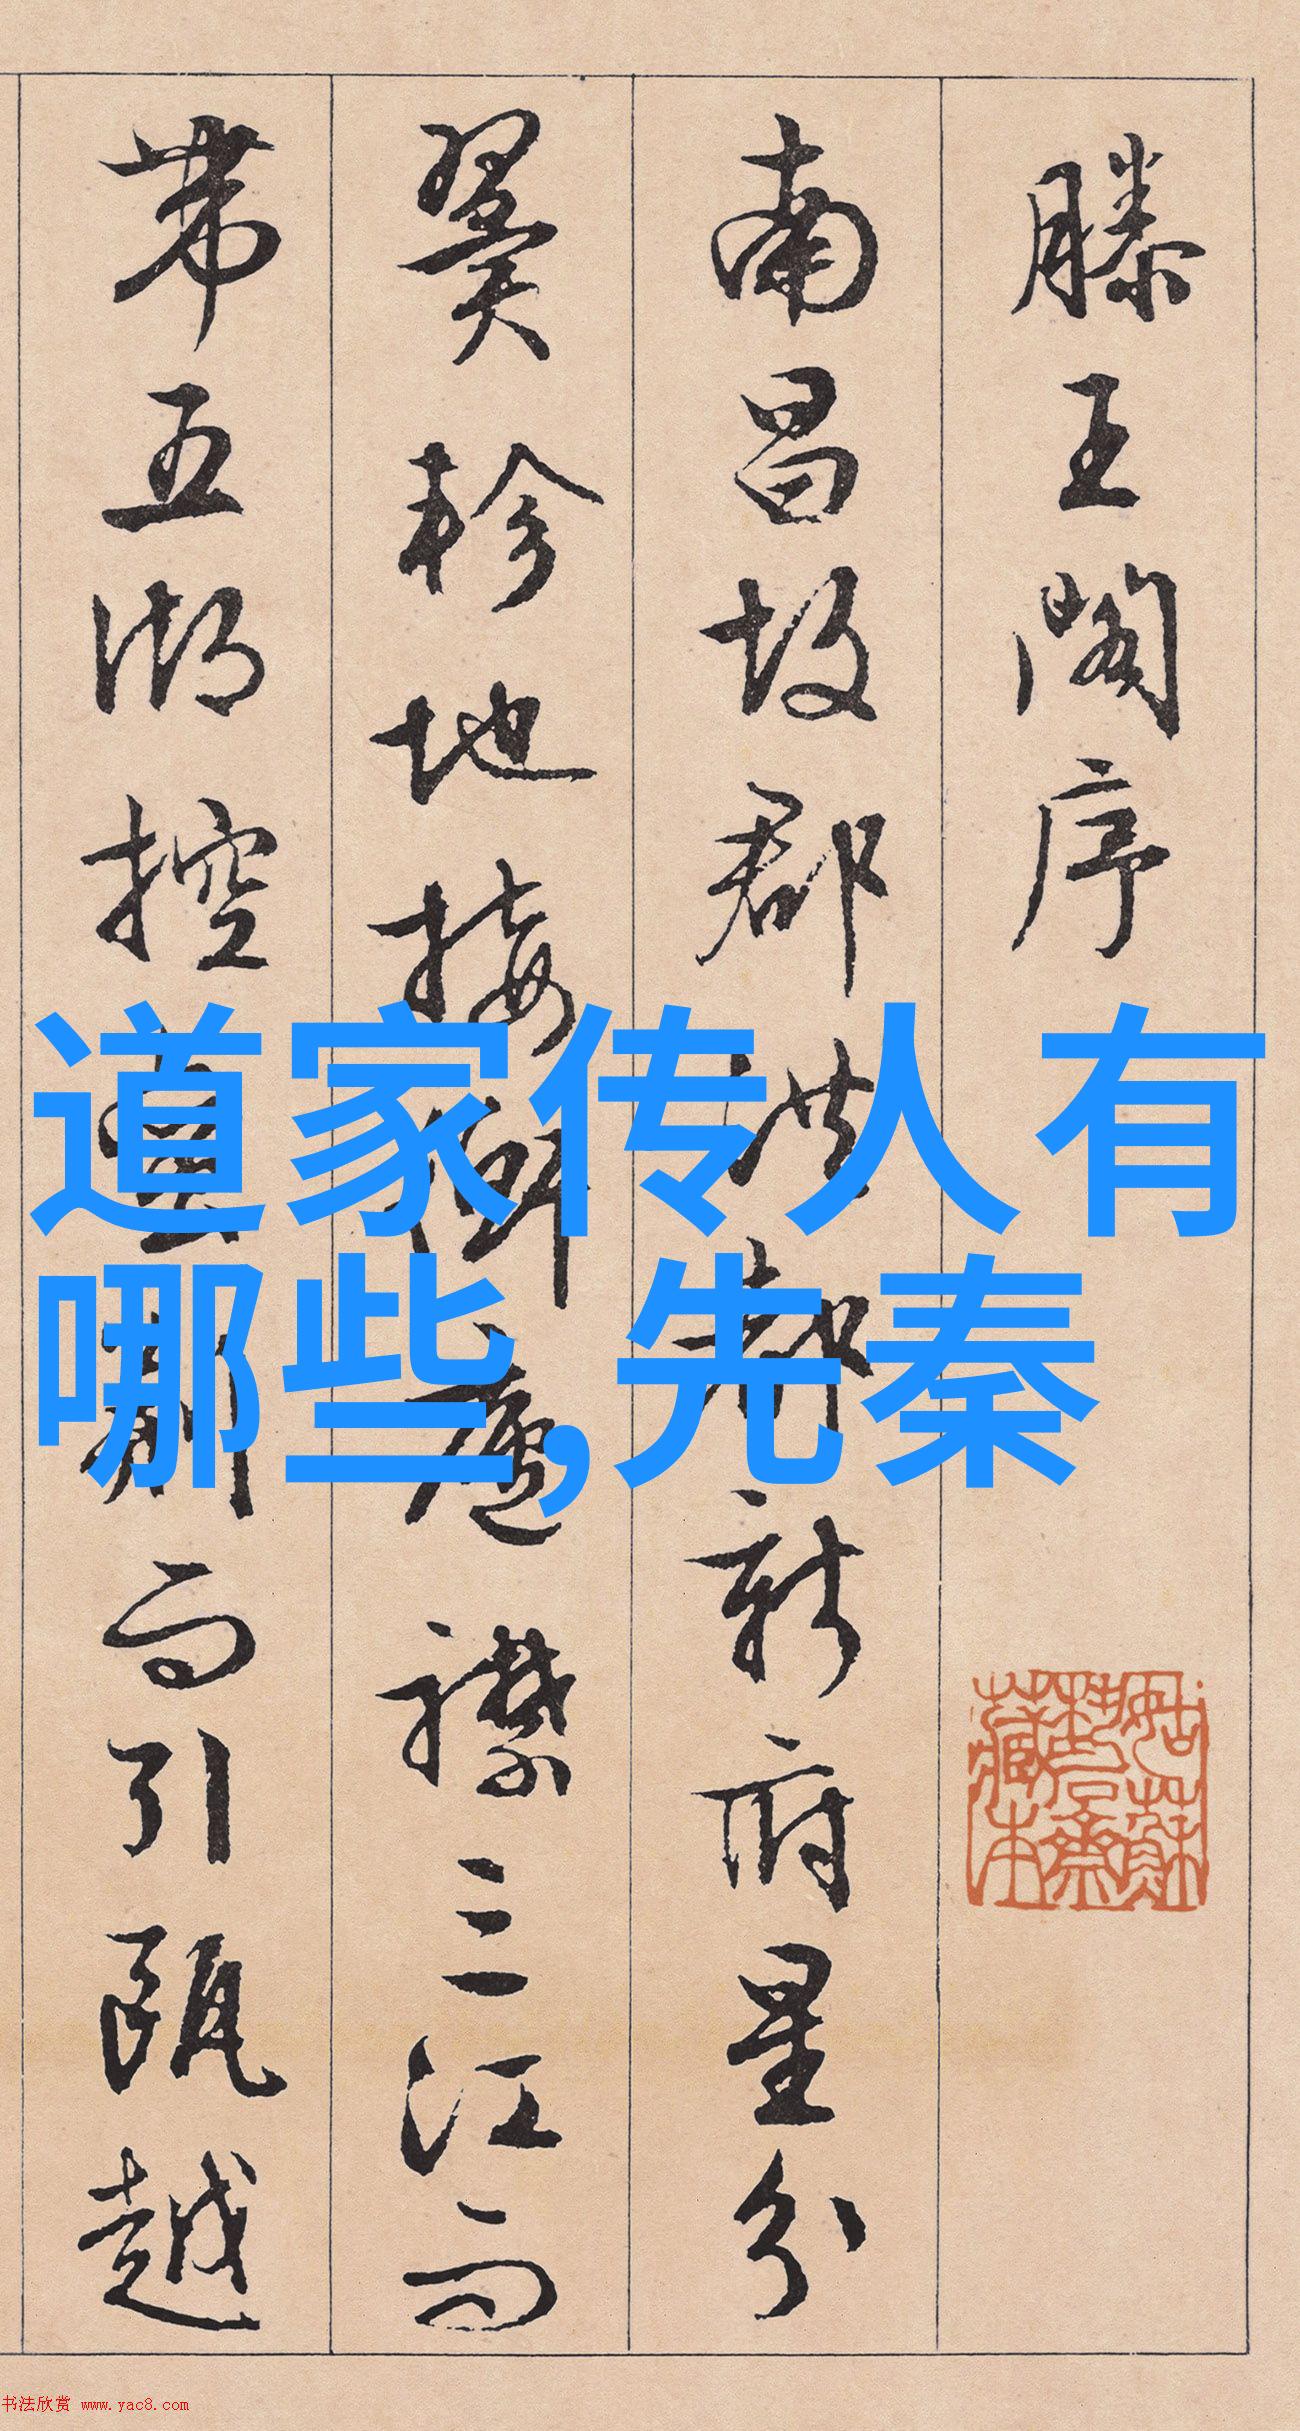 滕王阁序
南昌故郡洪都新府星分
翼轸地接衡庐襟三江而
带五湖控蛮荆而引瓯越
道家传人有
哪些,先秦
书法欣赏 www.yac8.com